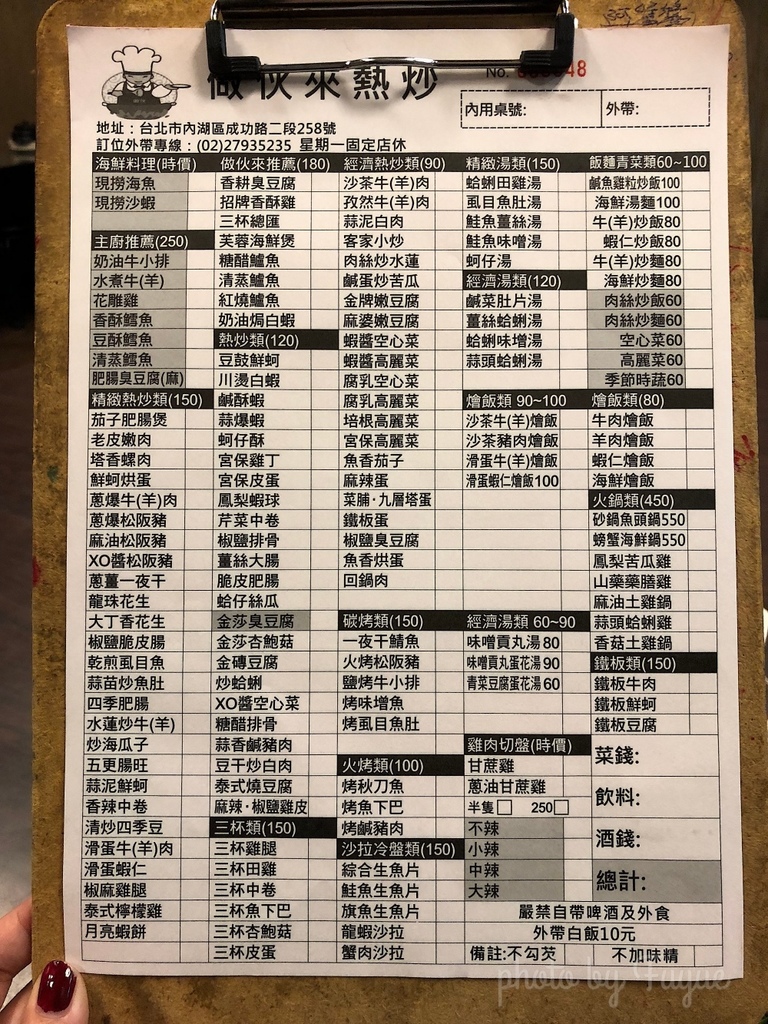 做伙來熱炒
No.
48
內用桌號:
外帶:
地址：台北市內湖區成功路二段258號
訂位外帶專線：(02)27935235 星期一固定店休
海鮮料理(時價)
現撈海魚
現撈沙蝦
主廚推薦(250)
奶油牛小排
水煮牛(羊)
花雕雞
香酥鱈魚
豆酥鱈魚
清蒸鱈魚
肥腸臭豆腐(麻)
精緻熱炒類(150)
茄子肥腸煲
老皮嫩肉
塔香螺肉
鮮蚵烘蛋
蔥爆牛(羊)肉
蔥爆松阪豬
麻油松阪豬
XO醬松阪豬
蔥薑一夜干
龍珠花生
大丁香花生
椒鹽脆皮腸
乾煎虱目魚
蒜苗炒魚肚
四季肥腸
水蓮炒牛(羊)
炒海瓜子
五更腸旺
蒜泥鮮蚵
香辣中卷
清炒四季豆
滑蛋牛(羊)肉
滑蛋蝦仁
椒麻雞腿
泰式檸檬雞
月亮蝦餅
做伙來推薦(180)
香耕臭豆腐
招牌香酥雞
三杯總匯
芙蓉海鮮煲
糖醋鱸魚
清蒸鱸魚
紅燒鱸魚
奶油焗白蝦
熱炒類(120)
豆鼓鮮蚵
川燙白蝦
鹹酥蝦
蒜爆蝦
蚵仔酥
宮保雞丁
宮保皮蛋
鳳梨蝦球
芹菜中卷
椒鹽排骨
薑絲大腸
脆皮肥腸
蛤仔絲瓜
金莎臭豆腐
金莎杏鮑菇
金磚豆腐
炒蛤蜊
XO醬空心菜
糖醋排骨
蒜香鹹豬肉
豆干炒白肉
泰式燒豆腐
麻辣·椒鹽雞皮
三杯類(150)
三杯雞腿
三杯田雞
三杯中卷
三杯魚下巴
三杯杏鮑菇
三杯皮蛋
經濟熱炒類(90)
沙茶牛(羊)肉
孜然牛(羊)肉
蒜泥白肉
客家小炒
肉絲炒水蓮
鹹蛋炒苦瓜
金牌嫩豆腐
麻婆嫩豆腐
蝦醬空心菜
蝦醬高麗菜
腐乳空心菜
腐乳高麗菜
培根高麗菜
宮保高麗菜
魚香茄子
麻辣蛋
菜脯·九層塔蛋
鐵板蛋
椒鹽臭豆腐
魚香烘蛋
回鍋肉
碳烤類(150)
一夜干鯖魚
火烤松阪豬
鹽烤牛小排
烤味增魚
烤虱目魚肚
火烤類(100)
烤秋刀魚
烤魚下巴
烤鹹豬肉
沙拉冷盤類(150)
綜合生魚片
鮭魚生魚片
旗魚生魚片
龍蝦沙拉
蟹肉沙拉
精緻湯類(150)
蛤蜊田雞湯
虱目魚肚湯
鮭魚薑絲湯
鮭魚味噌湯
蚵仔湯
經濟湯類(120)
鹹菜肚片湯
薑絲蛤蜊湯
蛤蜊味增湯
蒜頭蛤蜊湯
燴飯類 90~100
沙茶牛(羊)燴飯
沙茶豬肉燴飯
滑蛋牛(羊)燴飯
滑蛋蝦仁燴飯100
經濟湯類 60~90
味噌貢丸湯80
味噌貢丸蛋花湯90
青菜豆腐蛋花湯60
雞肉切盤(時價)
甘蔗雞
蔥油甘蔗雞
半隻□ 250□
不辣
小辣
中辣
大辣
飯麵青菜類60~100
鹹魚雞粒炒飯100
海鮮湯麵100
牛(羊)炒飯80
蝦仁炒飯80
牛(羊)炒麵80
海鮮炒麵80
肉絲炒飯60
肉絲炒麵60
空心菜60
高麗菜60
季節時蔬60
燴飯類(80)
牛肉燴飯
羊肉燴飯
蝦仁燴飯
海鮮燴飯
火鍋類(450)
砂鍋魚頭鍋550
螃蟹海鮮鍋550
鳳梨苦瓜雞
山藥藥膳雞
麻油土雞鍋
蒜頭蛤蜊雞
香菇土雞鍋
鐵板類(150)
鐵板牛肉
鐵板鮮蚵
鐵板豆腐
菜錢:
飲料:
酒錢:
總計:
嚴禁自帶啤酒及外食
外帶白飯10元
備註:不勾芡
不加味精
photo by Fayue